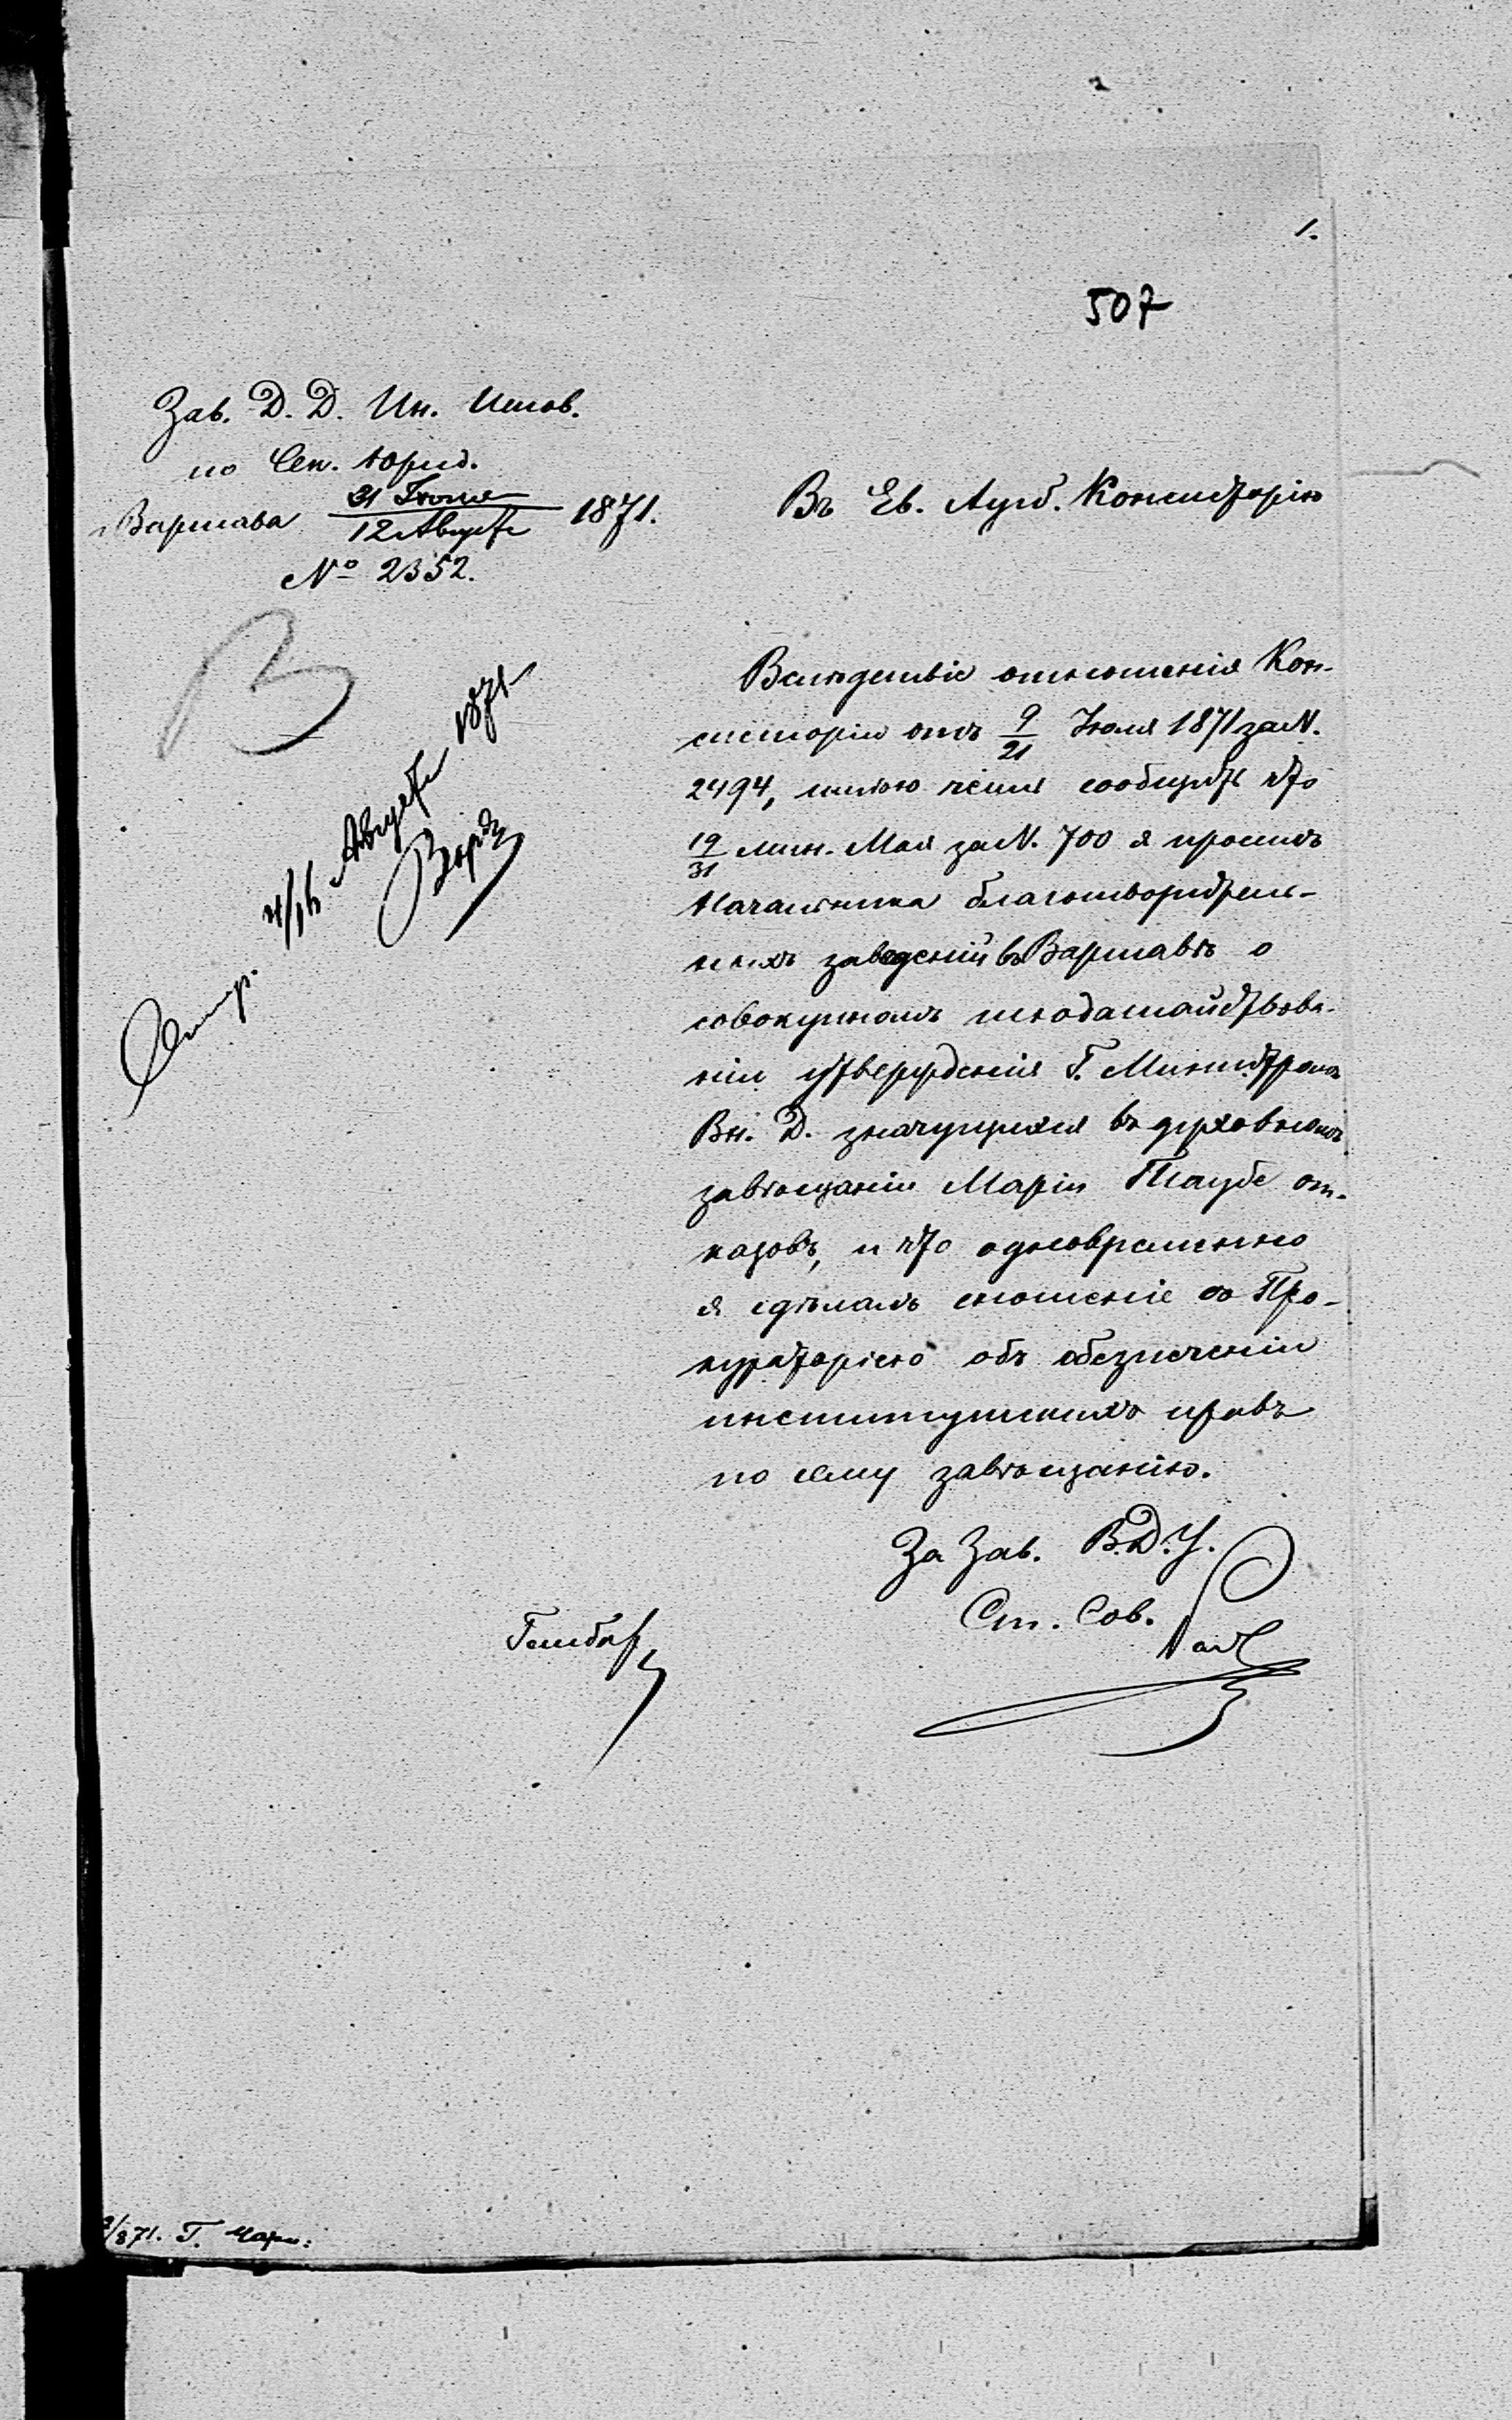 1.
507
Зав. Д. Д. Ин. Испов.
по Сек. Юрид.
Варшава 31 Іюля / 12 Августа 1871.
№ 2352.
Въ Ев. Аугсб. Консисторію
4/16 Августа 1871
Вслѣдствіе отношенія Кон-
систоріи отъ 9/21 Іюля 1871 за N.
2494, имѣю честь сообщить что
19/31 мин. Мая за N. 700 я просилъ
Начальника благотворитель-
ныхъ заведеній въ Варшавѣ о
совокупномъ исходатайствова-
ніи утвержденія Г. Министромъ
Вн. Д. значущихся въ духовномъ
завѣщаніи Маріи Таубе от-
казовъ, и что одновременно
я сдѣлалъ сношеніе съ Про-
кураторіею объ обезпеченіи
институтскихъ правъ
по сему завѣщанію.
За Зав. В.Д.У.
Ст. Сов.